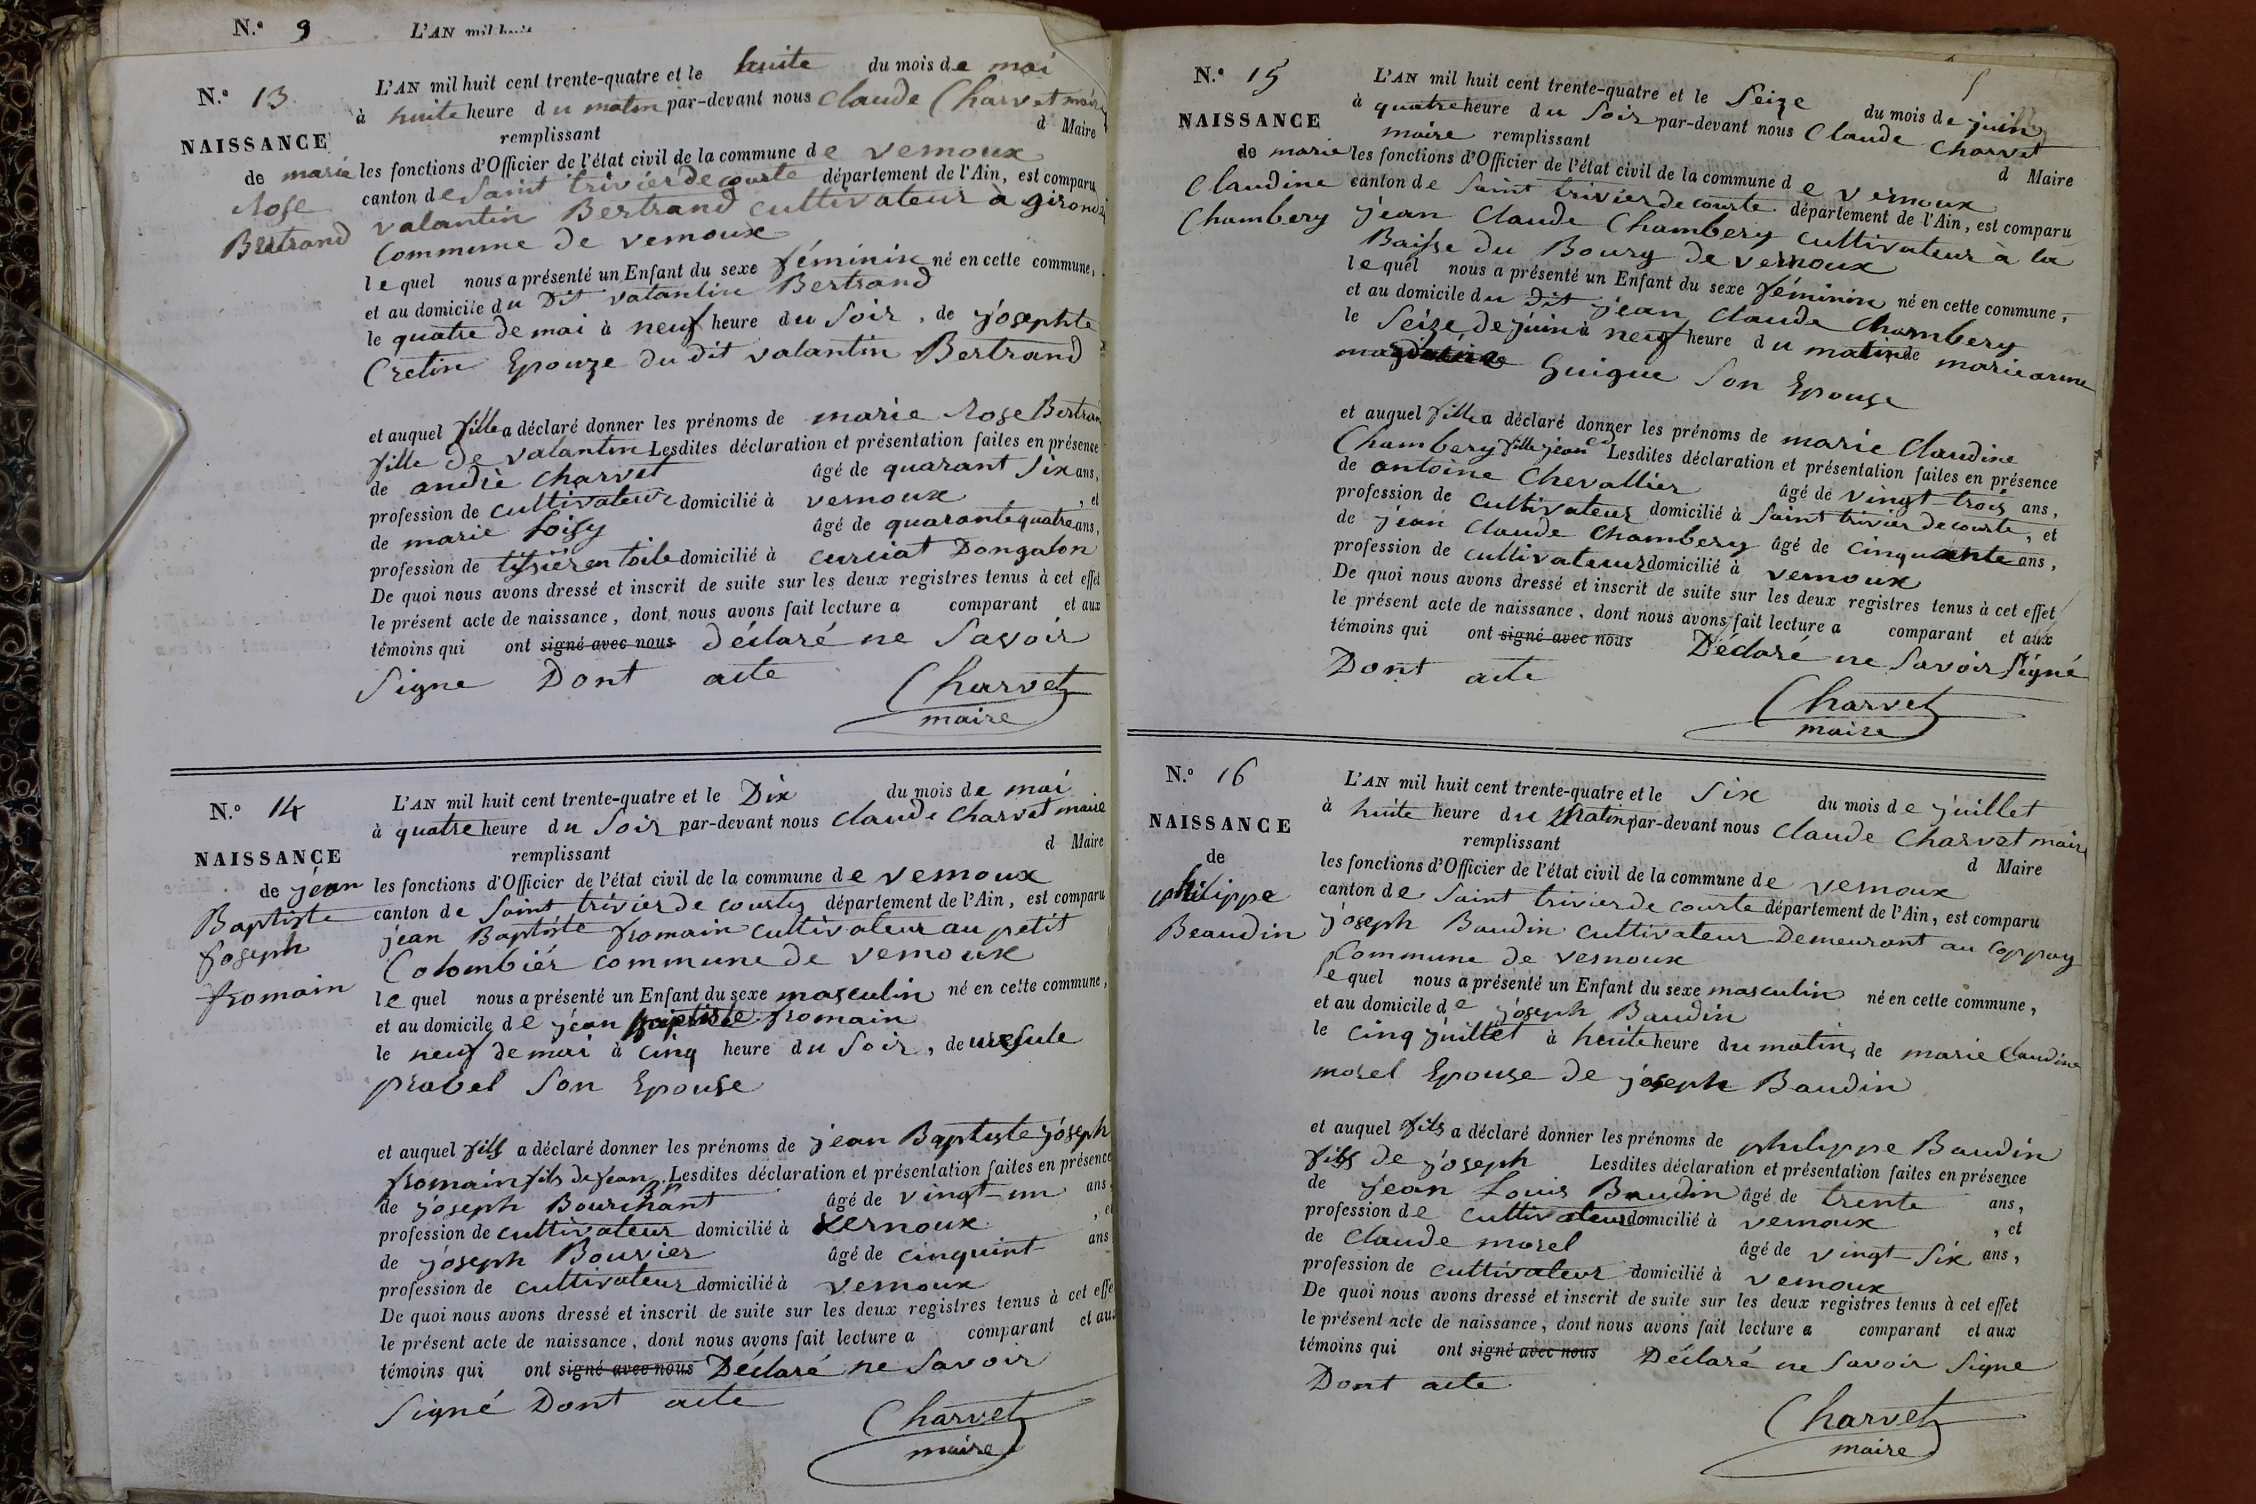 N.° 9 L'AN mil huit
N.° 13
NAISSANCE
de marie
Rose
Bertrand
L'AN mil huit cent trente-quatre et le huite du mois de mai
à huite heure du matin par-devant nous Claude Charvet maire
remplissant d Maire
les fonctions d'Officier de l'état civil de la commune de vernoux
canton de Saint trivier de courte département de l'Ain, est comparu
valantin Bertrand cultivateur à
Commune de vernoux
le quel nous a présenté un Enfant du sexe féminin né en cette commune,
et au domicile du Dit valantin Bertrand
le quatre de mai à neuf heure du Soir, de josephte
Cretin Epouze du dit valantin Bertrand
et auquel fille a déclaré donner les prénoms de marie Rose Bertrand
fille de valantin Lesdites déclaration et présentation faites en présence
de andré Charvet âgé de quarant Six ans,
profession de cultivateur domicilié à vernoux , et
de marie Loisy âgé de quarante quatre ans,
profession de en toile domicilié à curciat Dongalon
De quoi nous avons dressé et inscrit de suite sur les deux registres tenus à cet effet
le présent acte de naissance, dont nous avons fait lecture a comparant et aux
témoins qui ont signé avec nous déclaré ne Savoir
Signe Dont acte
Charvet
maire
N.° 14
NAISSANCE
de jean
Baptiste
Joseph
fromain
L'AN mil huit cent trente-quatre et le Dix du mois de mai
à quatre heure du Soir par-devant nous Claude Charvet maire
remplissant d Maire
les fonctions d'Officier de l'état civil de la commune de vernoux
canton de Saint trivier de courtes département de l'Ain, est comparu
jean Baptiste fromain cultivateur au petit
Colombiér commune de vernoux
le quel nous a présenté un Enfant du sexe masculin né en cette commune,
et au domicile de jean Baptiste fromain
le neuf de mai à cinq heure du Soir, de ursule
prabel Son Epouse
et auquel fils a déclaré donner les prénoms de jean Baptiste joseph
fromain fils de jean Bp.te Lesdites déclaration et présentation faites en présence
de joseph Bourchant âgé de vingt-un ans,
profession de cultivateur domicilié à vernoux , et
de joseph Bouvier âgé de cinquint ans
profession de cultivateur domicilié à vernoux
De quoi nous avons dressé et inscrit de suite sur les deux registres tenus à cet effet
le présent acte de naissance, dont nous avons fait lecture a comparant et aux
témoins qui ont signé avec nous Déclaré ne Savoir
Signé Dont acte
Charvet
maire
5
N.° 15
NAISSANCE
de marie
Claudine
Chambery
L'AN mil huit cent trente-quatre et le Seize du mois de juin
à quatre heure du Soir par-devant nous Claude Charvet
maire remplissant d Maire
les fonctions d'Officier de l'état civil de la commune de vernoux
canton de Saint trivier de courte département de l'Ain, est comparu
jean Claude Chambery cultivateur à la
Baisse du Bourg de vernoux
le quel nous a présenté un Enfant du sexe féminin né en cette commune,
et au domicile du dit jean Claude Chambery
le Seize de juin à neuf heure du matin de marie anne
magdeleine Guigue Son Epouse
et auquel fille a déclaré donner les prénoms de marie Claudine
Chambery fille jean C.d Lesdites déclaration et présentation faites en présence
de antoine Chevallier âgé de vingt-trois ans,
profession de cultivateur domicilié à Saint trivier de courte, et
de jean Claude Chambery âgé de cinquante ans,
profession de cultivateur domicilié à vernoux
De quoi nous avons dressé et inscrit de suite sur les deux registres tenus à cet effet
le présent acte de naissance, dont nous avons fait lecture a comparant et aux
témoins qui ont signé avec nous Déclaré ne Savoir Signé
Dont acte
Charvet
maire
N.° 16
NAISSANCE
de
philippe
Beaudin
L'AN mil huit cent trente-quatre et le Six du mois de juillet
à huite heure du Matin par-devant nous Claude Charvet maire
remplissant d Maire
les fonctions d'Officier de l'état civil de la commune de vernoux
canton de Saint trivier de courte département de l'Ain, est comparu
joseph Baudin cultivateur Demeurant au Coppay
Commune de vernoux
le quel nous a présenté un Enfant du sexe masculin né en cette commune,
et au domicile de joseph Baudin
le cinq juillet à huite heure du matin, de marie Claudine
morel Epouse de joseph Baudin
et auquel fils a déclaré donner les prénoms de philippe Baudin
fils de joseph Lesdites déclaration et présentation faites en présence
de jean Louis Baudin âgé de trente ans,
profession de cultivateur domicilié à vernoux , et
de claude morel âgé de vingt-Six ans,
profession de cultivateur domicilié à vernoux
De quoi nous avons dressé et inscrit de suite sur les deux registres tenus à cet effet
le présent acte de naissance, dont nous avons fait lecture a comparant et aux
témoins qui ont signé avec nous Déclaré ne Savoir Signe
Dont acte
Charvet
maire